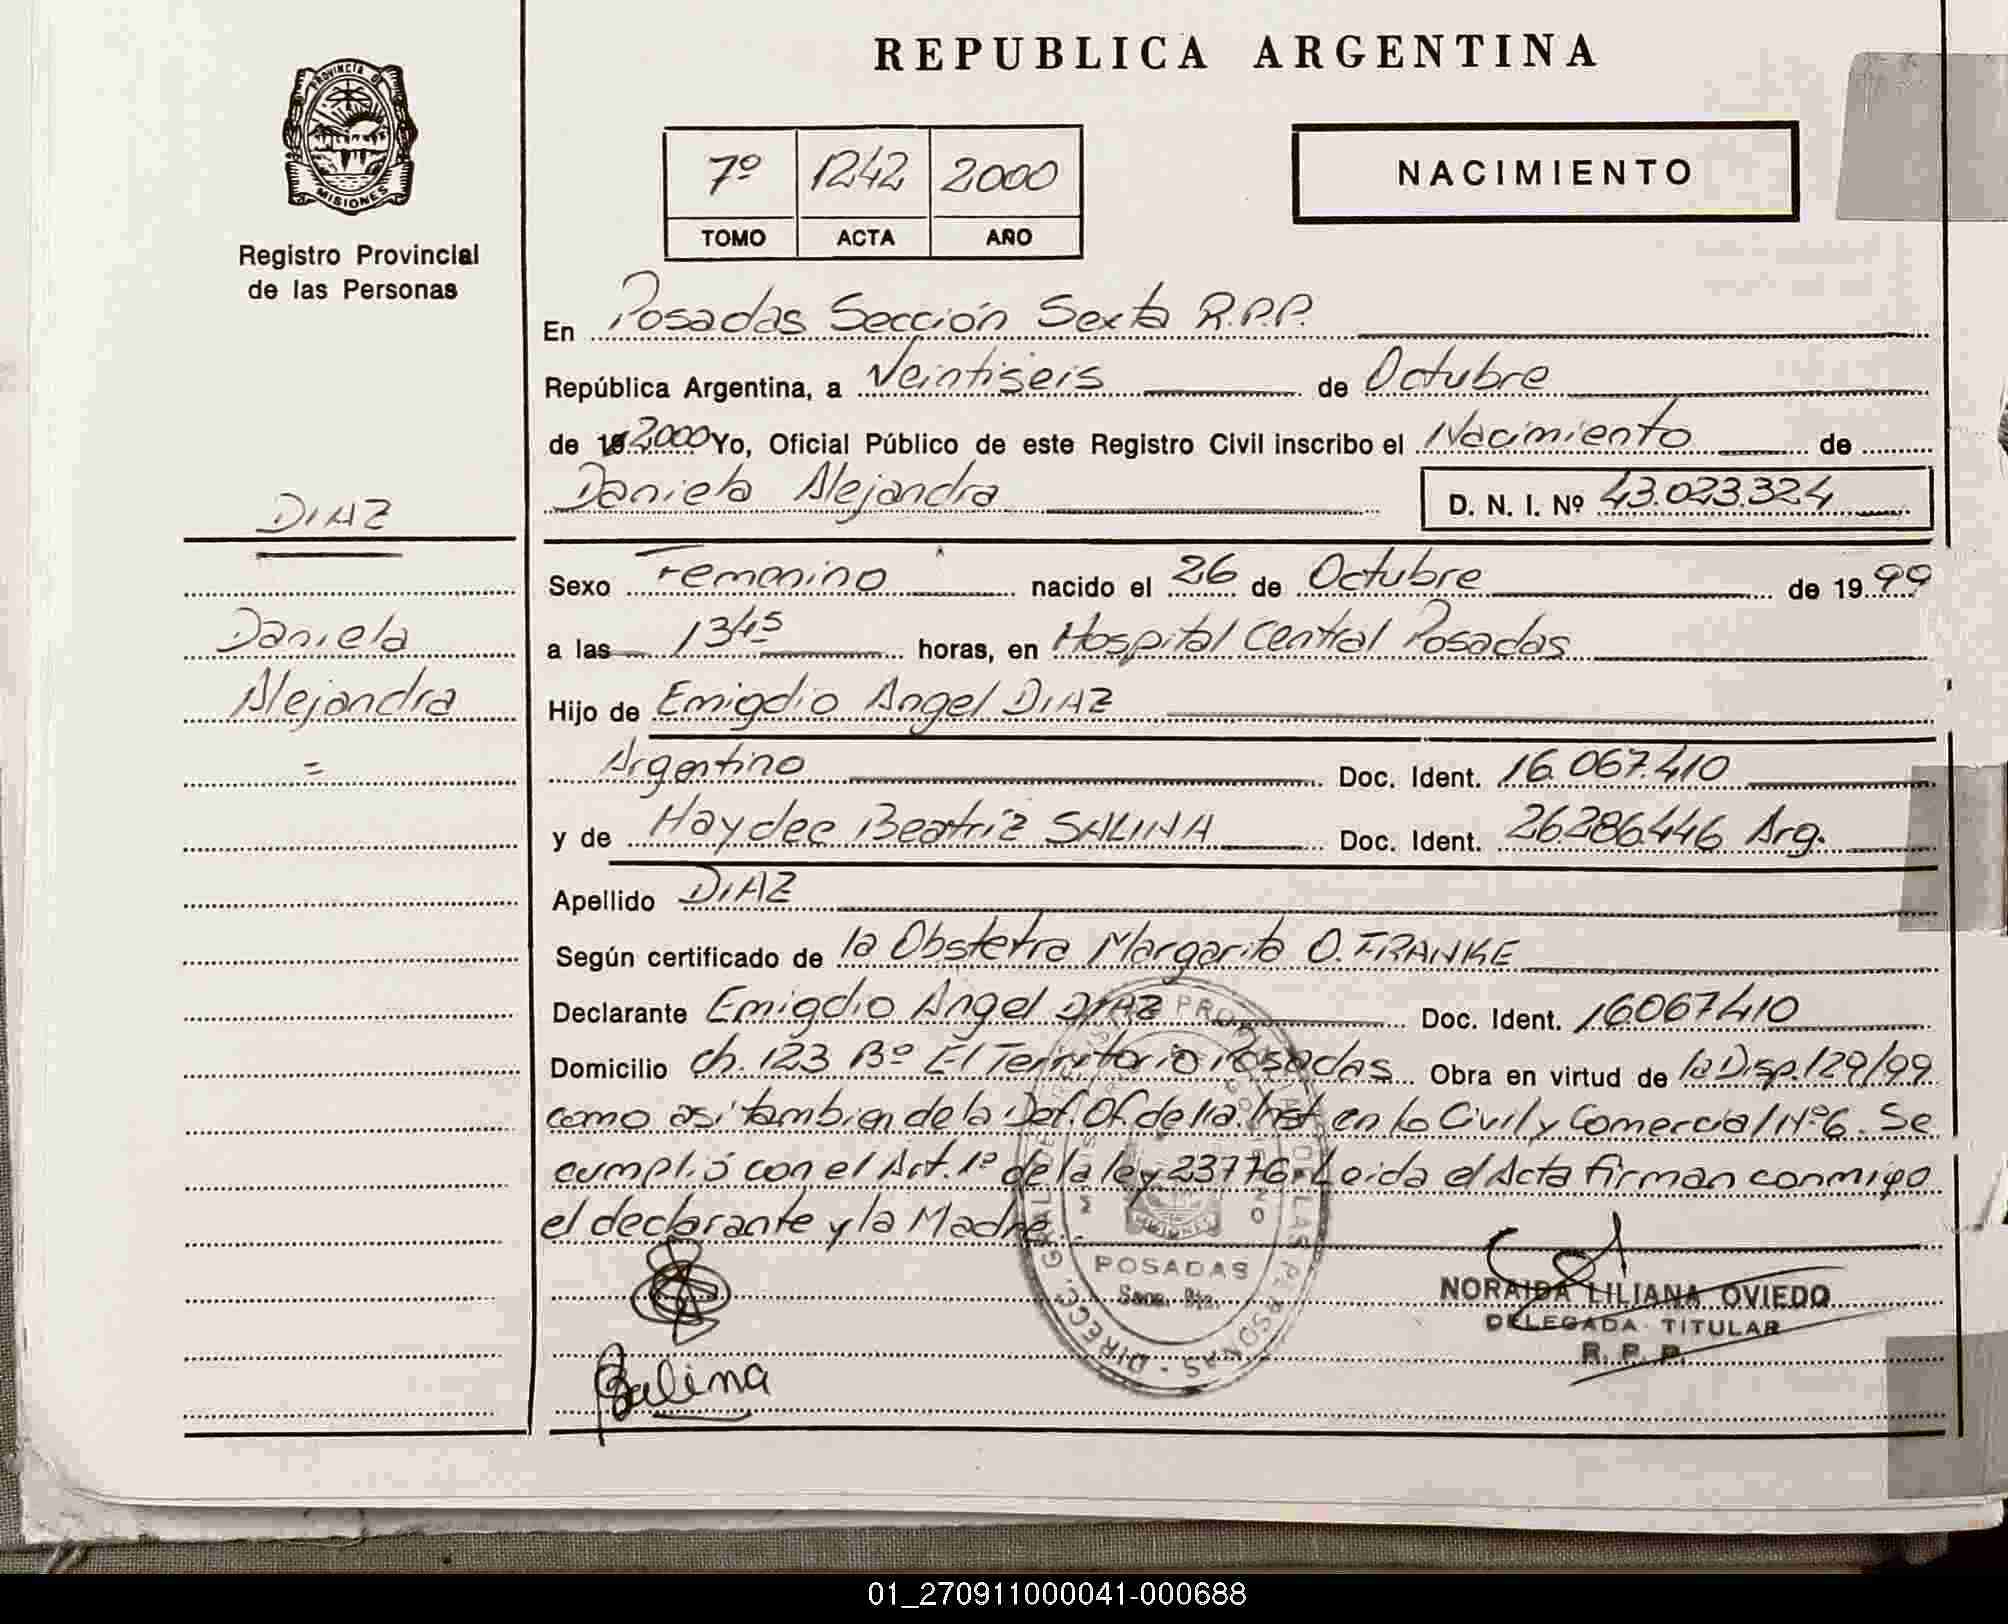 REPUBLICA ARGENTINA
PROVINCIA D
MISIONES
Registro Provincial
de las Personas
7º 1242 2000
TOMO ACTA AÑO
NACIMIENTO
En Posadas Sección Sexta R.P.P.
República Argentina, a Veintiseis de Octubre
de 19 2000 Yo, Oficial Público de este Registro Civil inscribo el Nacimiento de
Daniela Alejandra D. N. I. Nº 43.023.324
DIAZ
Daniela
Alejandra
=
Sexo Femenino nacido el 26 de Octubre de 1999
a las 1345 horas, en Hospital Central Posadas
Hijo de Emigdio Angel DIAZ
Argentino Doc. Ident. 16.067.410
y de Haydee Beatriz SALINA Doc. Ident. 26.286.446 Arg.
Apellido DIAZ
Según certificado de la Obstetra Margarita O. FRANKE
Declarante Emigdio Angel DIAZ Doc. Ident. 16067410
Domicilio ch. 123 Bº El Territorio Posadas Obra en virtud de la Disp. 129/99
como asi tambien de la Def. Of. de 1ra. Inst en lo Civil y Comercial Nº6. Se
cumplió con el Art. 1º de la ley 23776. Leida el Acta firman conmigo
el declarante y la Madre.
POSADAS
Salina
NORAIDA LILIANA OVIEDO
DELEGADA TITULAR
R. P. P.
01_270911000041-000688